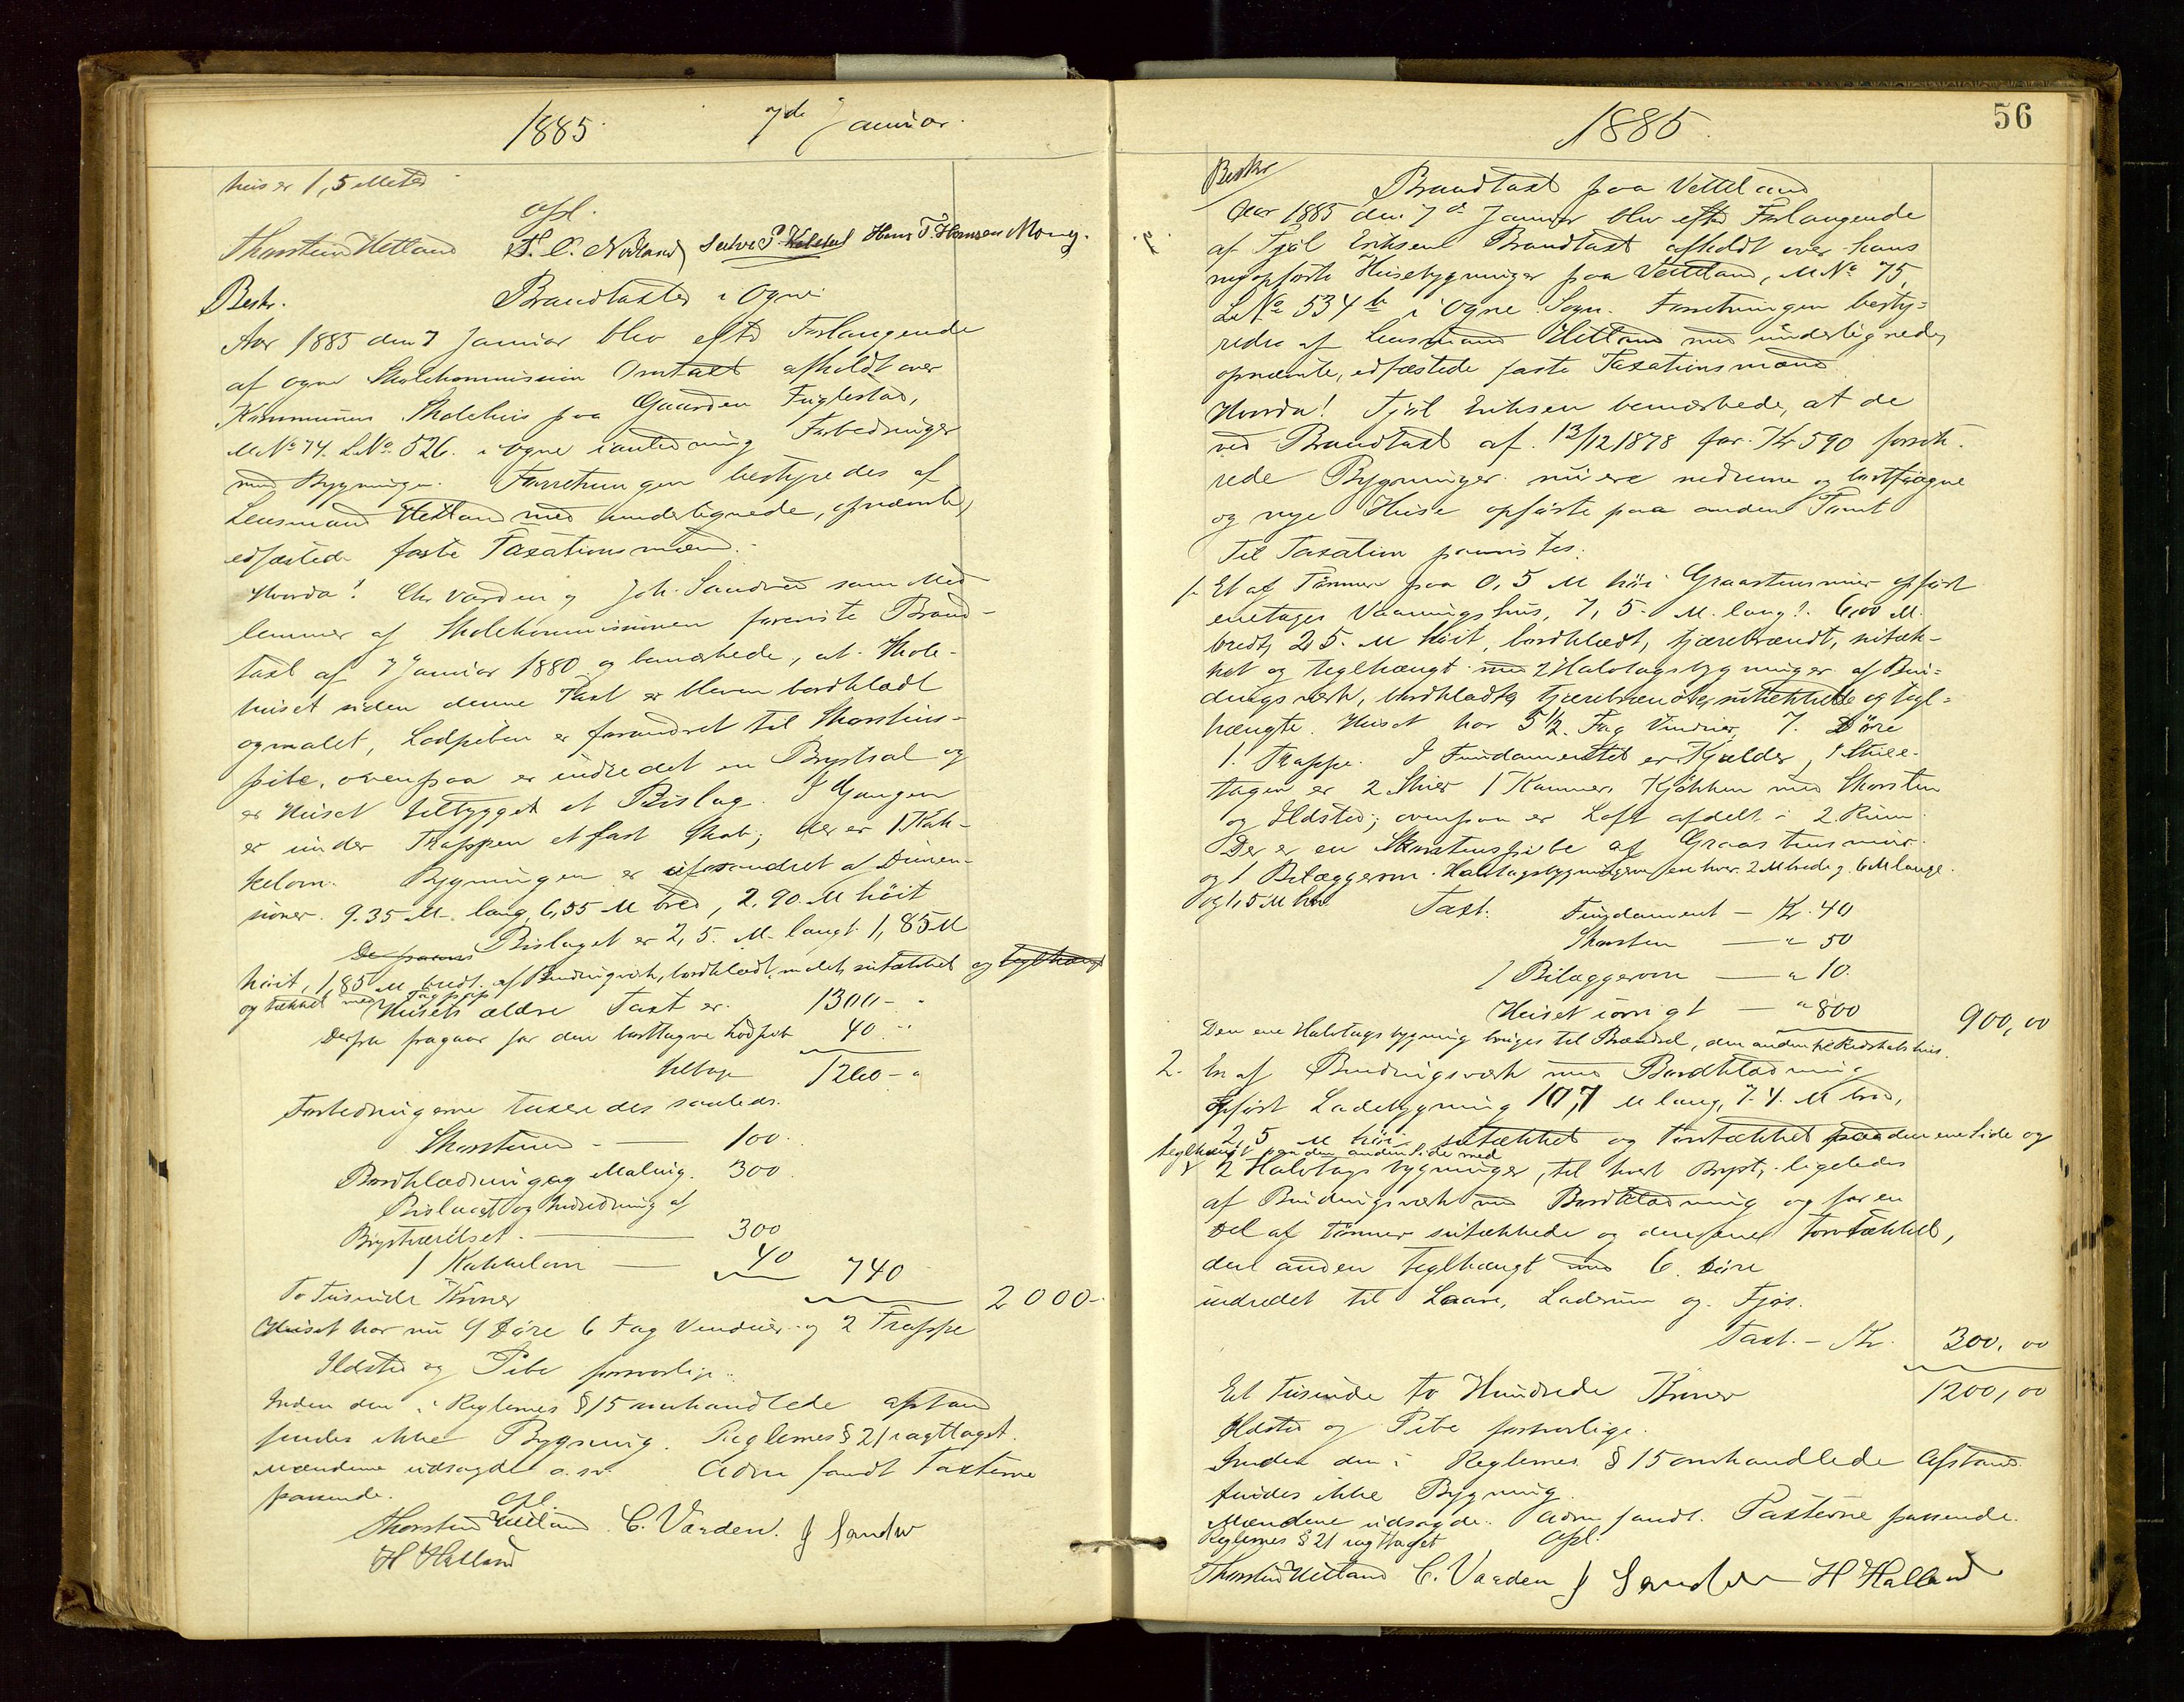 1885 7de Januar.
hus er 1,5 Meter
opl.
Thorstein Hetland
Hans T. Hansen Mong.
Beskr. Brandtaxter i Ogne
Aar 1885 den 7 Januar blev efter Forlangende
af Ogne Skolekommission Omtaxt afholdt over
Kommunens Skolehus paa Gaarden Fuglestad,
M.No 74. L.No. 526. i Ogne i anledning Forbedringer
med Bygningen. Forretningen bestyredes af
Lensmand Hetland med undertegnede, opnævnte,
edfæstede faste Taxationsmænd.
Hvorda! Chr Varden og Joh. Sandved som Med-
lemmer af Skolekommissionen foreviste Brand-
taxt af 7 Januar 1880 og bemærkede, at Skole-
huset siden denne Taxt er bleven bordklædt
og malet, Lodpiben er forandret til Skorstens-
pibe, ovenpaa er indredet en Brystsal og
er Huset tilbygget et Bislag. I Gangen
er under Trappen et fast Skab; der er 1 Kak-
kelovn. Bygningen er uforandret af Dimen-
sioner. 9.35 M. lang, 6,55 M bred, 2,90 M höit
Bislaget er 2,5. M. langt 1,85 M
höit, 1,85 M bredt. af Bindingsverk, bordklædt, malet, sutækket og teglhængt
og tækket med Tagpap
Husets ældre Taxt er. 1300 - "
Derfra fragaar for den borttagne Lodpibe 40 "
tilbage 1260 - "
Forbedringerne taxeredes saaledes.
Skorstenen - 100.
Bordklædning og Maling. 300
Bislaget og Indredning af
Brystværelset. 300
1 Kakkelovn 40 740
To Tusinde Kroner 2000 -
Huset har nu 9 Döre 6 Fag Venduer og 2 Trappe
Ildsted og Pibe forsvarlige.
Inden den i Reglernes § 15 omhandlede afstand
findes ikke Bygning. Reglernes § 21 iagttaget.
Mændene udsagde o.s.v. Adm fandt Taxterne
passende.
opl.
Thorstein Hetland C. Varden. J Sandve
H Hetland
1885. 56
Beskr
Brandtaxt paa Vetteland
Aar 1885 den 7de Januar blev efter Forlangende
af Tjöl Eriksen Brandtaxt afholdt over hans
nyopförte Husebygninger paa Vetteland, M No 75,
L No 534 b i Ogne Sogn. Forretningen besty-
redes af Lensmand Hetland med undertegnede,
opnævnte, edfæstede faste Taxationsmænd
Hvorda! Tjöl Eriksen bemærkede, at de
ved Brandtaxt af 13/12 1878 for Kr 590 forsik-
rede Bygninger nu ere nedrevne og borttagne
og nye Huse opförte paa anden Tomt
Til Taxation paavistes:
1. Et af Tömmer paa 0,5 M höi Graastensmur opfört
enetages Vaaningshus, 7,5 M. langt. 6,00 M.
bredt, 2,5 M höit, bordklædt, tjærebrændt, sutæk-
ket og teglhængt med 2 Halvtagsbygninger af Bin-
dingsverk, bordklædte, tjærebrændte, sutækkede og tegl-
hængte. Huset har 5 1/2 Fag Vinduer, 7. Döre
1. Trappe. I Fundamentet er Kjelder, 1ste Stue-
tagen er 2 Stuer 1 Kammer, Kjökken med Skorsten
og Ildsted; ovenpaa er Loft afdelt i 2. Rum.
Der er en Skorstenspibe af Graastensmur
og 1 Bilæggerovn. Halvtagsbygningerne ere hver 2 M brede og 6 M lange
og 1,5 M höi
Taxt. Fundament - Kr. 40
Skorsten - " 50
1 Bilæggerovn - " 10.
Huset iövrigt - " 800 900,00
Den ene Halvtagsbygning bruges til Brændsel, den anden til Redskabshus.
2. En af Bindingsverk med Bordklædning
opfört Ladebygning 10,7 M lang, 7.4. M bred,
2,5 M höi, sutækket og torvtækket paa den ene Side og
teglhængt paa den anden Side med
2 Halvtagsbygninger, til hvert Bryst, ligeledes
af Bindingsverk med Bordklædning og for en
Del af Tömmer sutækkede og den ene torvtækket,
den anden teglhængt med 6. Döre
indredet til Laave, Laderum og Fjös.
Taxt. - Kr. 300,00
Et Tusinde to Hundrede Kroner 1200,00
Ildsted og Pibe forsvarlige.
Inden den i Reglernes § 15 omhandlede Afstand
findes ikke Bygning.
Mændene udsagde. Adm fandt Taxterne passende.
Reglernes § 21 iagttaget opl.
Thorstein Hetland C. Varden J Sandve H Hetland